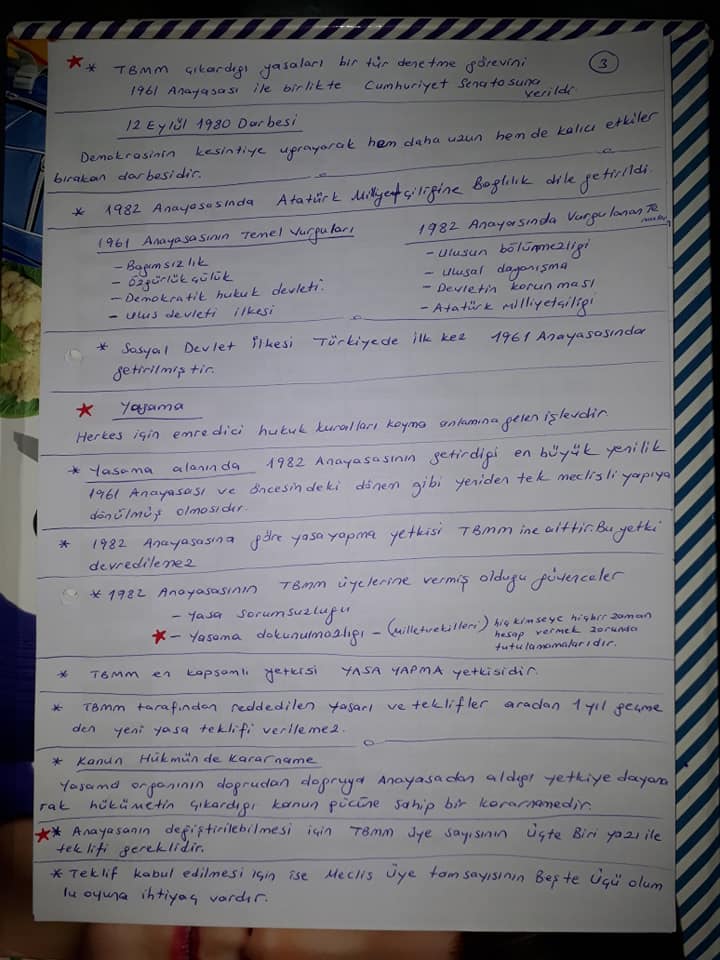 * TBMM çıkardığı yasaları bir tür denetme görevini
3
1961 Anayasası ile birlikte Cumhuriyet Senatosuna
verildi.
12 Eylül 1980 Darbesi
Demokrasinin kesintiye uğrayarak hem daha uzun hem de kalıcı etkiler
bırakan darbesidir.
* 1982 Anayasasında Atatürk Milliyetçiliğine Bağlılık dile getirildi.
1961 Anayasasının Temel Vurguları
- Bağımsızlık
- Özgürlükçülük
- Demokratik hukuk devleti.
- Ulus devleti ilkesi
1982 Anayasında Vurgulanan Te
- Ulusun bölünmezliği
- Ulusal dayanışma
- Devletin korunması
- Atatürk milliyetçiliği
* Sosyal Devlet İlkesi Türkiyede ilk kez 1961 Anayasasında
getirilmiştir.
Yasama
Herkes için emredici hukuk kuralları koyma anlamına gelen işlevdir
* Yasama alanında 1982 Anayasasının getirdiği en büyük yenilik
1961 Anayasası ve öncesindeki dönem gibi yeniden tek meclisli yapıya
dönülmüş olmasıdır.
* 1982 Anayasasına göre yasa yapma yetkisi TBMM ine aittir. Bu yetki
devredilemez
* 1982 Anayasasının TBMM üyelerine vermiş olduğu güvenceler
- Yasa sorumsuzluğu
- Yasama dokunulmazlığı - (milletvekilleri) hiç kimseye hiçbir zaman
hesap vermek zorunda
tutulamamalarıdır.
* TBMM en kapsamlı yetkisi YASA YAPMA yetkisidir.
* TBMM tarafından reddedilen yasarı ve teklifler aradan 1 yıl geçme
den yeni yasa teklifi verilemez.
* Kanun Hükmünde Kararname
Yasama organının doğrudan doğruya Anayasadan aldığı yetkiye dayana
rak hükümetin çıkardığı kanun gücüne sahip bir kararnamedir.
* Anayasanın değiştirilebilmesi için TBMM üye sayısının Üçte Biri yazı ile
teklifi gereklidir.
* Teklif kabul edilmesi için ise Meclis Üye tam sayısının Beşte Üçü olum
lu oyuna ihtiyaç vardır.